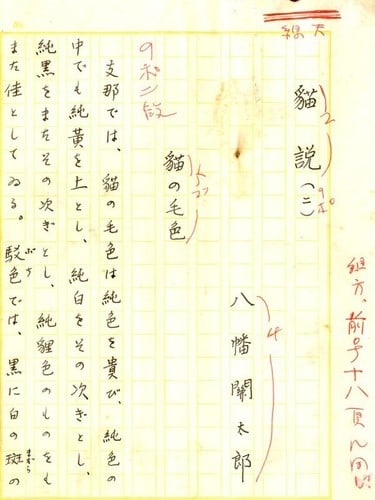 天
組方、前号十八頁ト同じ
貓説(二)
八幡關太郎
貓の毛色
9ポ二段
支那では、貓の毛色は純色を貴び、純色の
中でも純黄を上とし、純白をその次ぎとし、
純黒をまたその次ぎとし、純貍色のものをも
また佳としてゐる。駁色では、黒に白の斑の